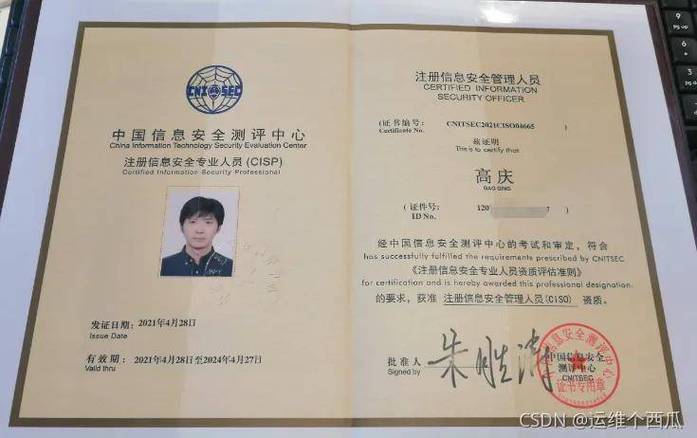 CNITSEC
中国信息安全测评中心
China Information Technology Security Evaluation Center
注册信息安全专业人员(CISP)
Certified Information Security Professional
发证日期: 2021年4月28日
Issue Date
有效期: 2021年4月28日至2024年4月27日
Valid thru
注册信息安全管理人员
CERTIFIED INFORMATION
SECURITY OFFICER
(证书编号: CNITSEC2021CISO04665 )
Certificate No.
兹证明
This is to certify that
高庆
GAO QING
(证件号: 120 7 )
ID No.
经中国信息安全测评中心的考试和审定,符合
has successfully fulfilled the requirements prescribed by CNITSEC
《注册信息安全专业人员资质评估准则》
for certification and is hereby awarded this professional designation.
的要求,获准 注册信息安全管理人员(CISO) 资质。
批准人
Signed by
朱胜涛
中国信息安全
测评中心
CNITSEC
证书专用章
CSDN @运维个西瓜